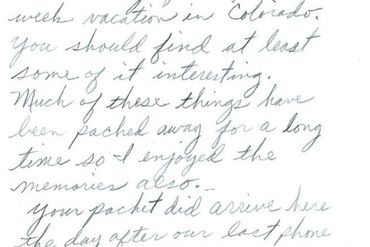 week vacation in Colorado.
You should find at least
some of it interesting.
Much of these things have
been packed away for a long
time so I enjoyed the
memories also.
Your packet did arrive here
the day after our last phone